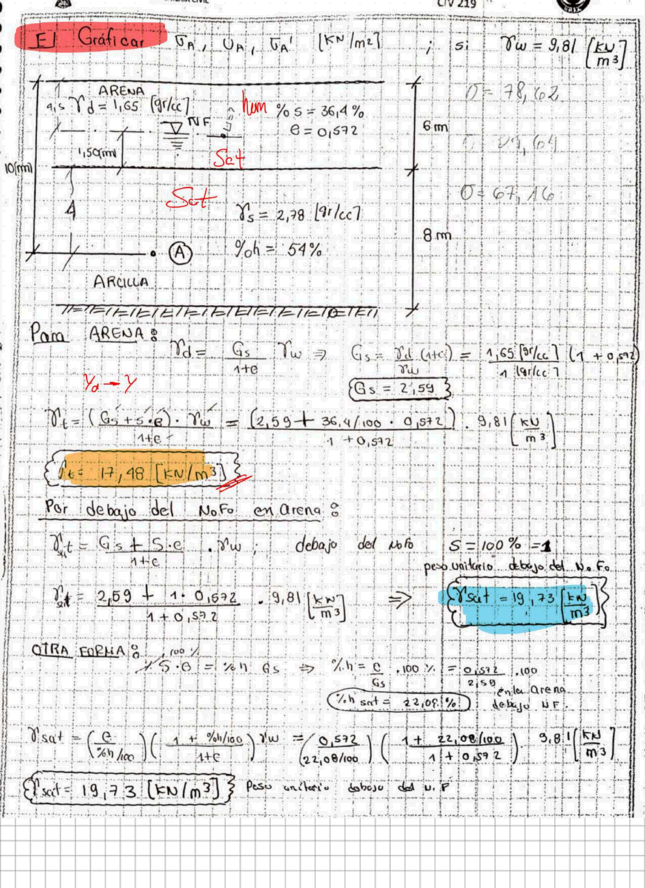 CIV 219
E] Gráficar σA, UA, σA' [KN/m2] ; si γw = 9,81 [KN/m3]
ARENA
4,5 γd = 1,65 [gr/cc] NF hum %s = 36,4%
e = 0,572
1,50(m) Sat
6 m
10(m)
Sat
4 γs = 2,78 [gr/cc]
%h = 54%
8 m
A
ARCILLA
σ = 78,62
σ = 67,16
Para ARENA:
γd = Gs/1+e γw ⇒ Gs = γd (1+e)/γw = 1,65 [gr/cc] (1 + 0,572)/1 [gr/cc]
γd → γ
Gs = 2,59
γt = (Gs + s·e)/1+e · γw = (2,59 + 36,4/100 · 0,572)/1 + 0,572 · 9,81 [KN/m3]
γt = 17,48 [KN/m3]
Por debajo del N.F. en arena:
γsat = Gs + S·e/1+e · γw ; debajo del N.F. S = 100% = 1
peso unitario debajo del N.F.
γsat = 2,59 + 1 · 0,572/1 + 0,572 · 9,81 [KN/m3] ⇒ γsat = 19,73 [KN/m3]
OTRA FORMA:
100%
S·e = %h Gs ⇒ %h = e/Gs · 100% = 0,572/2,59 · 100
%h sat = 22,08% en la arena debajo NF.
γsat = (e/%h/100) (1 + %h/100/1+e) γw = (0,572/22,08/100) (1 + 22,08/100/1 + 0,572) · 9,81 [KN/m3]
γsat = 19,73 [KN/m3] Peso unitario debajo del N.F